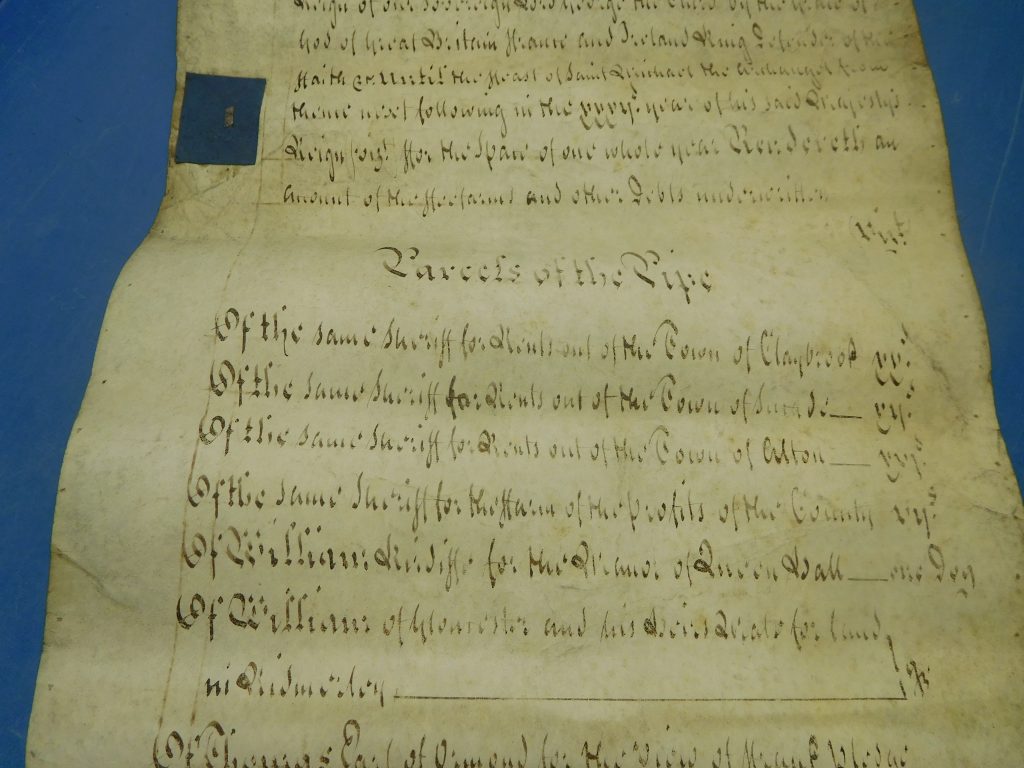 Reign of our Sovereign Lord George the Third by the Grace of
God of Great Britain France and Ireland King Defender of the
Faith &c Until the Feast of Saint Michael the Archangel from
thence next following in the year of his said Majesty's
Reign for the Space of one whole year Rendereth an
amount of the Feefarms and other Debts underwritten
Parcels of the Pipe
Of the same Sheriff for Rents out of the Town of Claybrook
Of the same Sheriff for Rents out of the Town of
Of the same Sheriff for Rents out of the Town of Alton
Of the same Sheriff for the Farm of the profits of the County
Of William for the Manor of Queen Hall one Dog
Of William of Gloucester and his Heirs for land
in Ridmerley
Of Thomas Earl of Ormond for the View of Frank Pledge